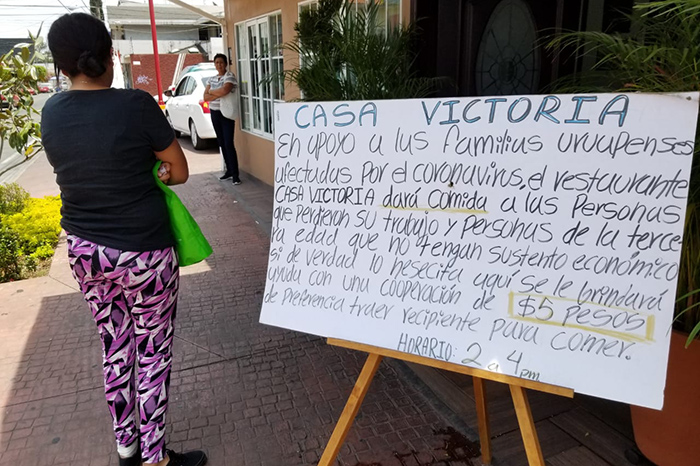 CASA VICTORIA
En apoyo a las familias uruapenses
afectadas por el coronavirus, el restaurante
CASA VICTORIA dará comida a las Personas
que Perdieron su trabajo y Personas de la terce-
ra edad que no tengan sustento económico
si de verdad lo nesecita aquí se le brindará
ayuda con una cooperación de $5 Pesos
de Preferencia traer recipiente para comer.
HORARIO: 2 a 4pm